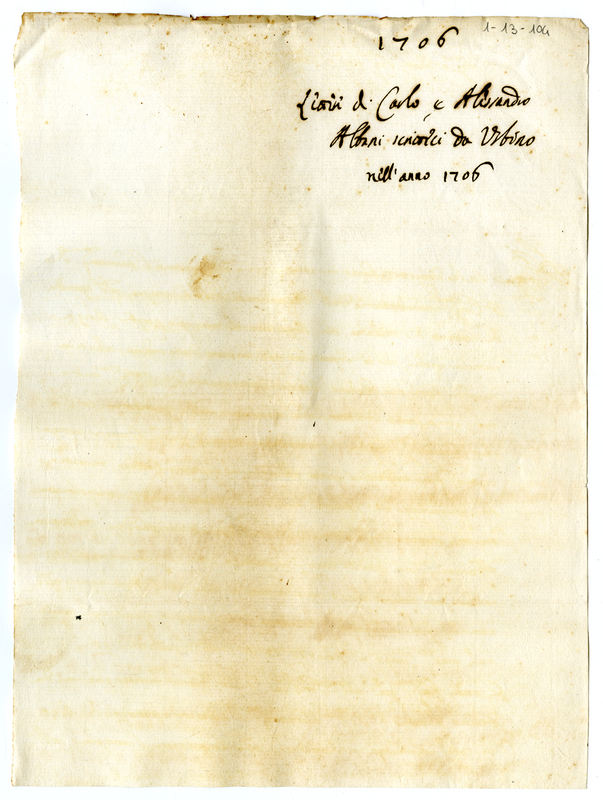 1-13-104
1706
Lettere di Carlo e Alessandro
Albani scrittici da Urbino
nell'anno 1706